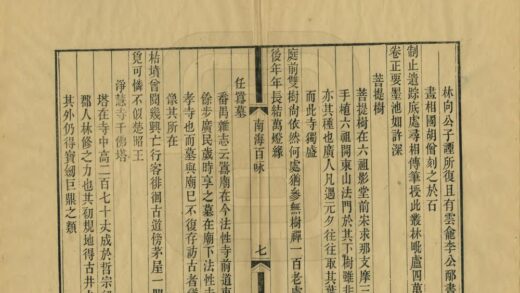 林向公子諲所復且有雲龕李公邴書
畫相國胡愈刻之於石
制止遺踪底處尋相傳筆授此叢林毗盧四萬
卷正要墨池如許深
菩提樹
菩提樹在六祖影堂前宋求那支摩三
手植六祖開東山法門於其下樹雖非
亦其種也廣人凡遇元夕往往取其葉
而此寺獨盛
庭前雙樹尚依然何處猶參無樹禪一百老
後年年長結萬燈緣
南海百咏
七
任囂墓
番禺雜志云囂廟在今法性寺前道東
餘步廣民歲時享之墓在廟下法性寺
孝寺也而墓與廟巳不復存訪古者
其所在
枯墳曾閱幾興亡行客徘徊古道傍茅屋一
竟可憐不似楚昭王
淨慧寺千佛塔
塔在寺中高二百七十丈成於哲宗
郡人林修之力也其初規地得古井
其外仍得寶劔巨鼎之類